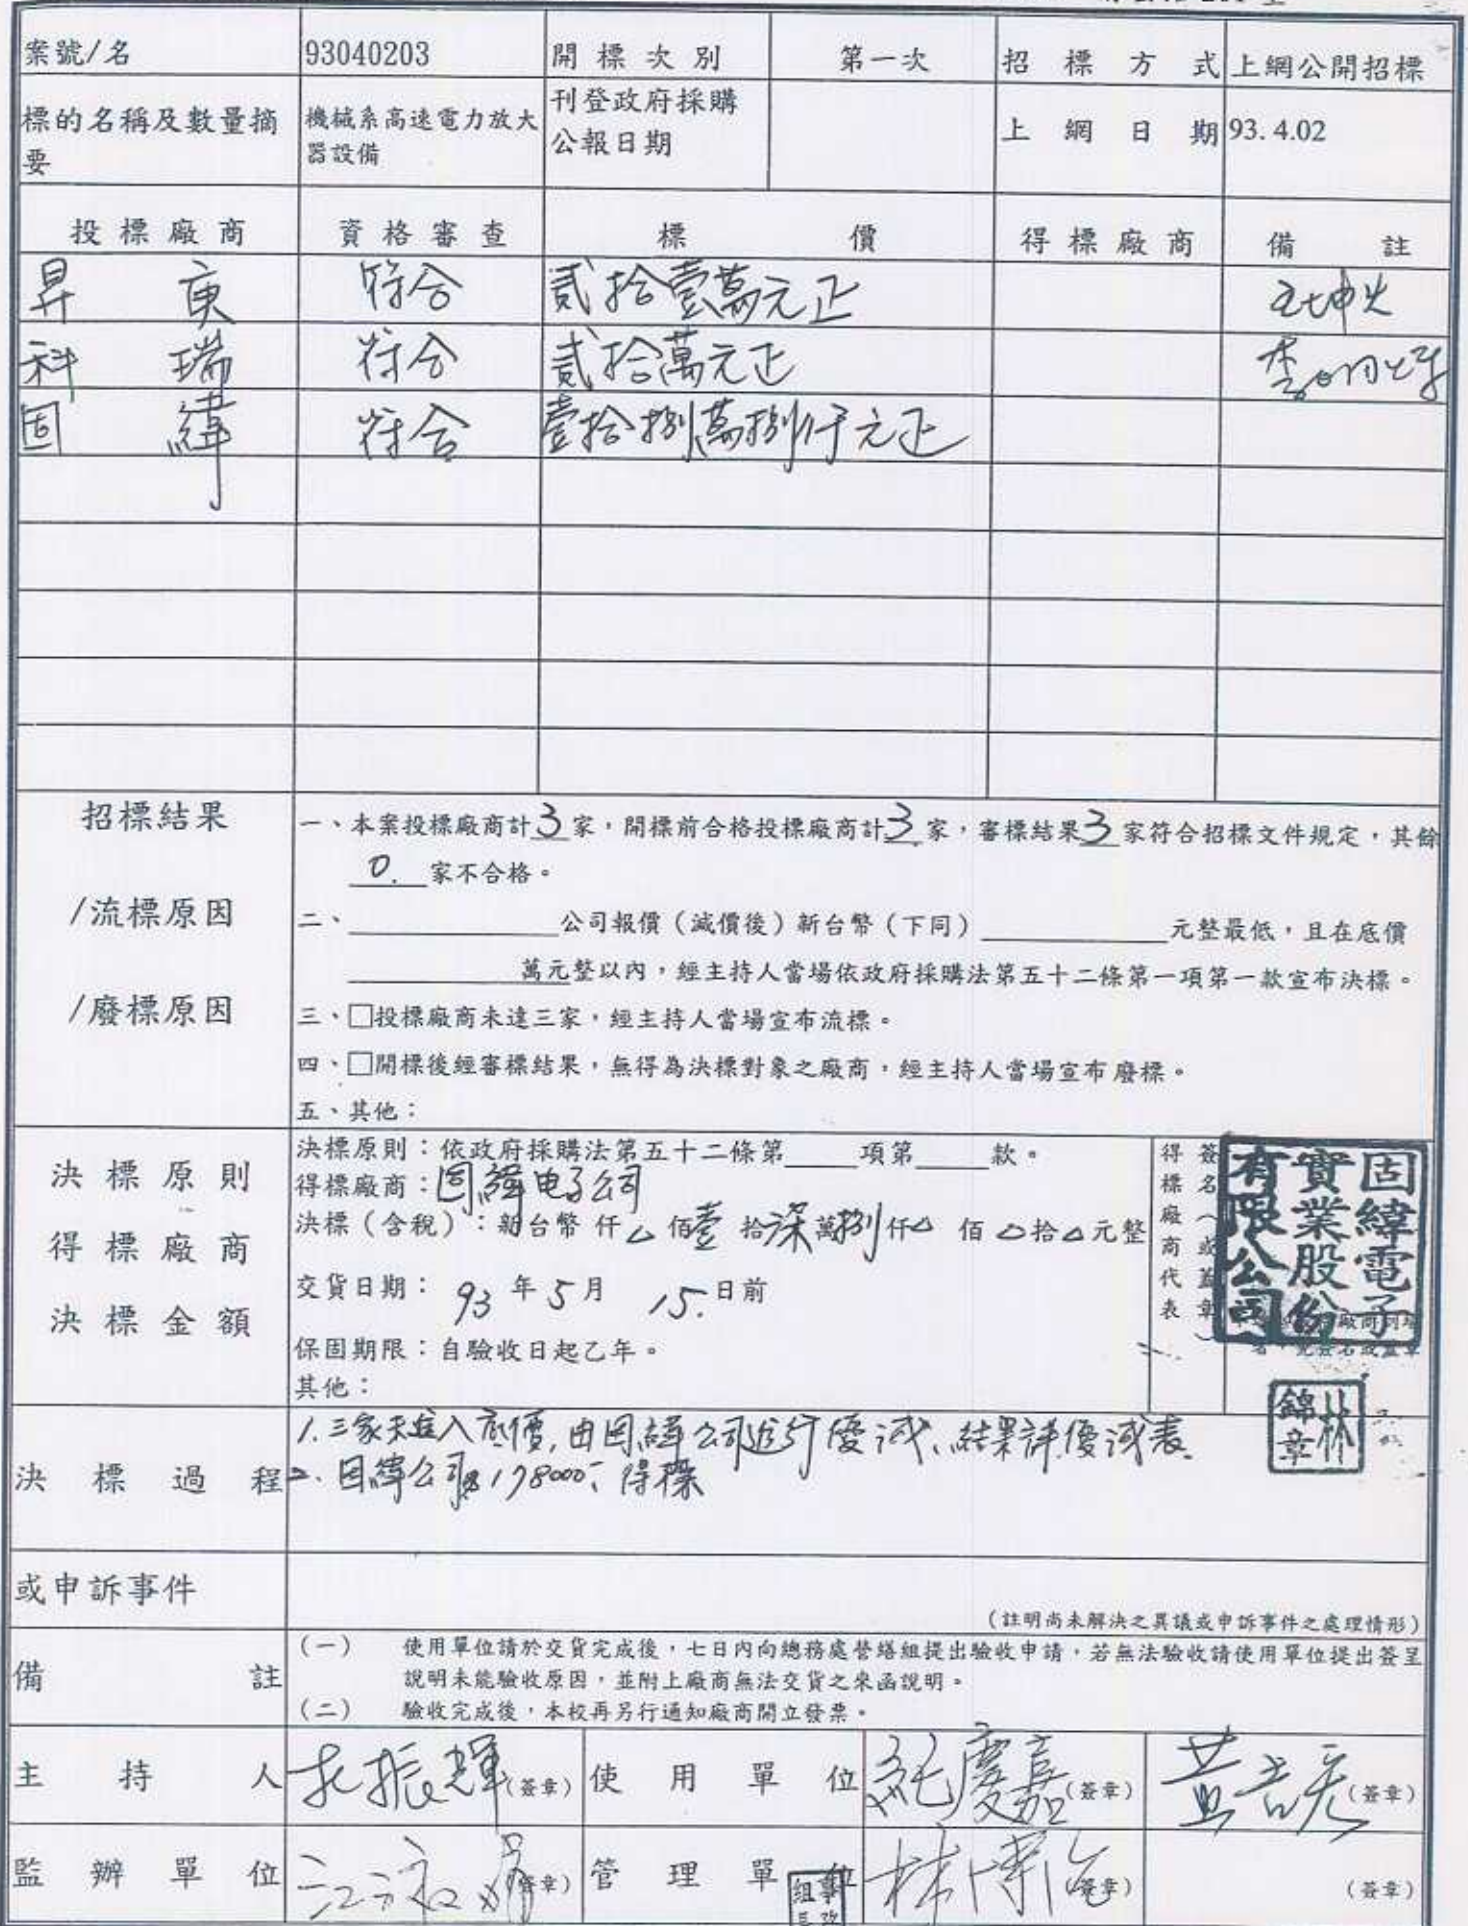 案號/名 93040203 開標次別 第一次 招標方式 上網公開招標
標的名稱及數量摘要 機械系高速電力放大器設備 刊登政府採購公報日期 上網日期 93.4.02
投標廠商 資格審查 標價 得標廠商 備註
昇庚 符合 貳拾壹萬元正
科瑞 符合 貳拾萬元正
固緯 符合 壹拾捌萬捌仟元正
招標結果
/流標原因
/廢標原因
一、本案投標廠商計3家,開標前合格投標廠商計3家,審標結果3家符合招標文件規定,其餘
0.家不合格。
二、公司報價(減價後)新台幣(下同)元整最低,且在底價
萬元整以內,經主持人當場依政府採購法第五十二條第一項第一款宣布決標。
三、□投標廠商未達三家,經主持人當場宣布流標。
四、□開標後經審標結果,無得為決標對象之廠商,經主持人當場宣布廢標。
五、其他:
決標原則
得標廠商
決標金額
決標原則:依政府採購法第五十二條第 項第 款。
得標廠商:固緯电子公司
決標(含稅):新台幣 仟△ 佰壹 拾柒萬捌仟△ 佰△拾△元整
交貨日期: 93年5月 15.日前
保固期限:自驗收日起乙年。
其他:
得標廠商代表
簽名(或蓋章)
固緯電子
實業股份
有限公司
林錦章
決標過程
1.三家未進入底價,由固緯公司進行優減、結果詳優減表.
2.固緯公司以178000得標
或申訴事件
(註明尚未解決之異議或申訴事件之處理情形)
備註
(一) 使用單位請於交貨完成後,七日內向總務處營繕組提出驗收申請,若無法驗收請使用單位提出簽呈
說明未能驗收原因,並附上廠商無法交貨之來函說明。
(二) 驗收完成後,本校再另行通知廠商開立發票。
主持人 振輝(簽章) 使用單位 慶嘉(簽章) (簽章)
監辦單位 (簽章) 管理單位 林博(簽章) (簽章)